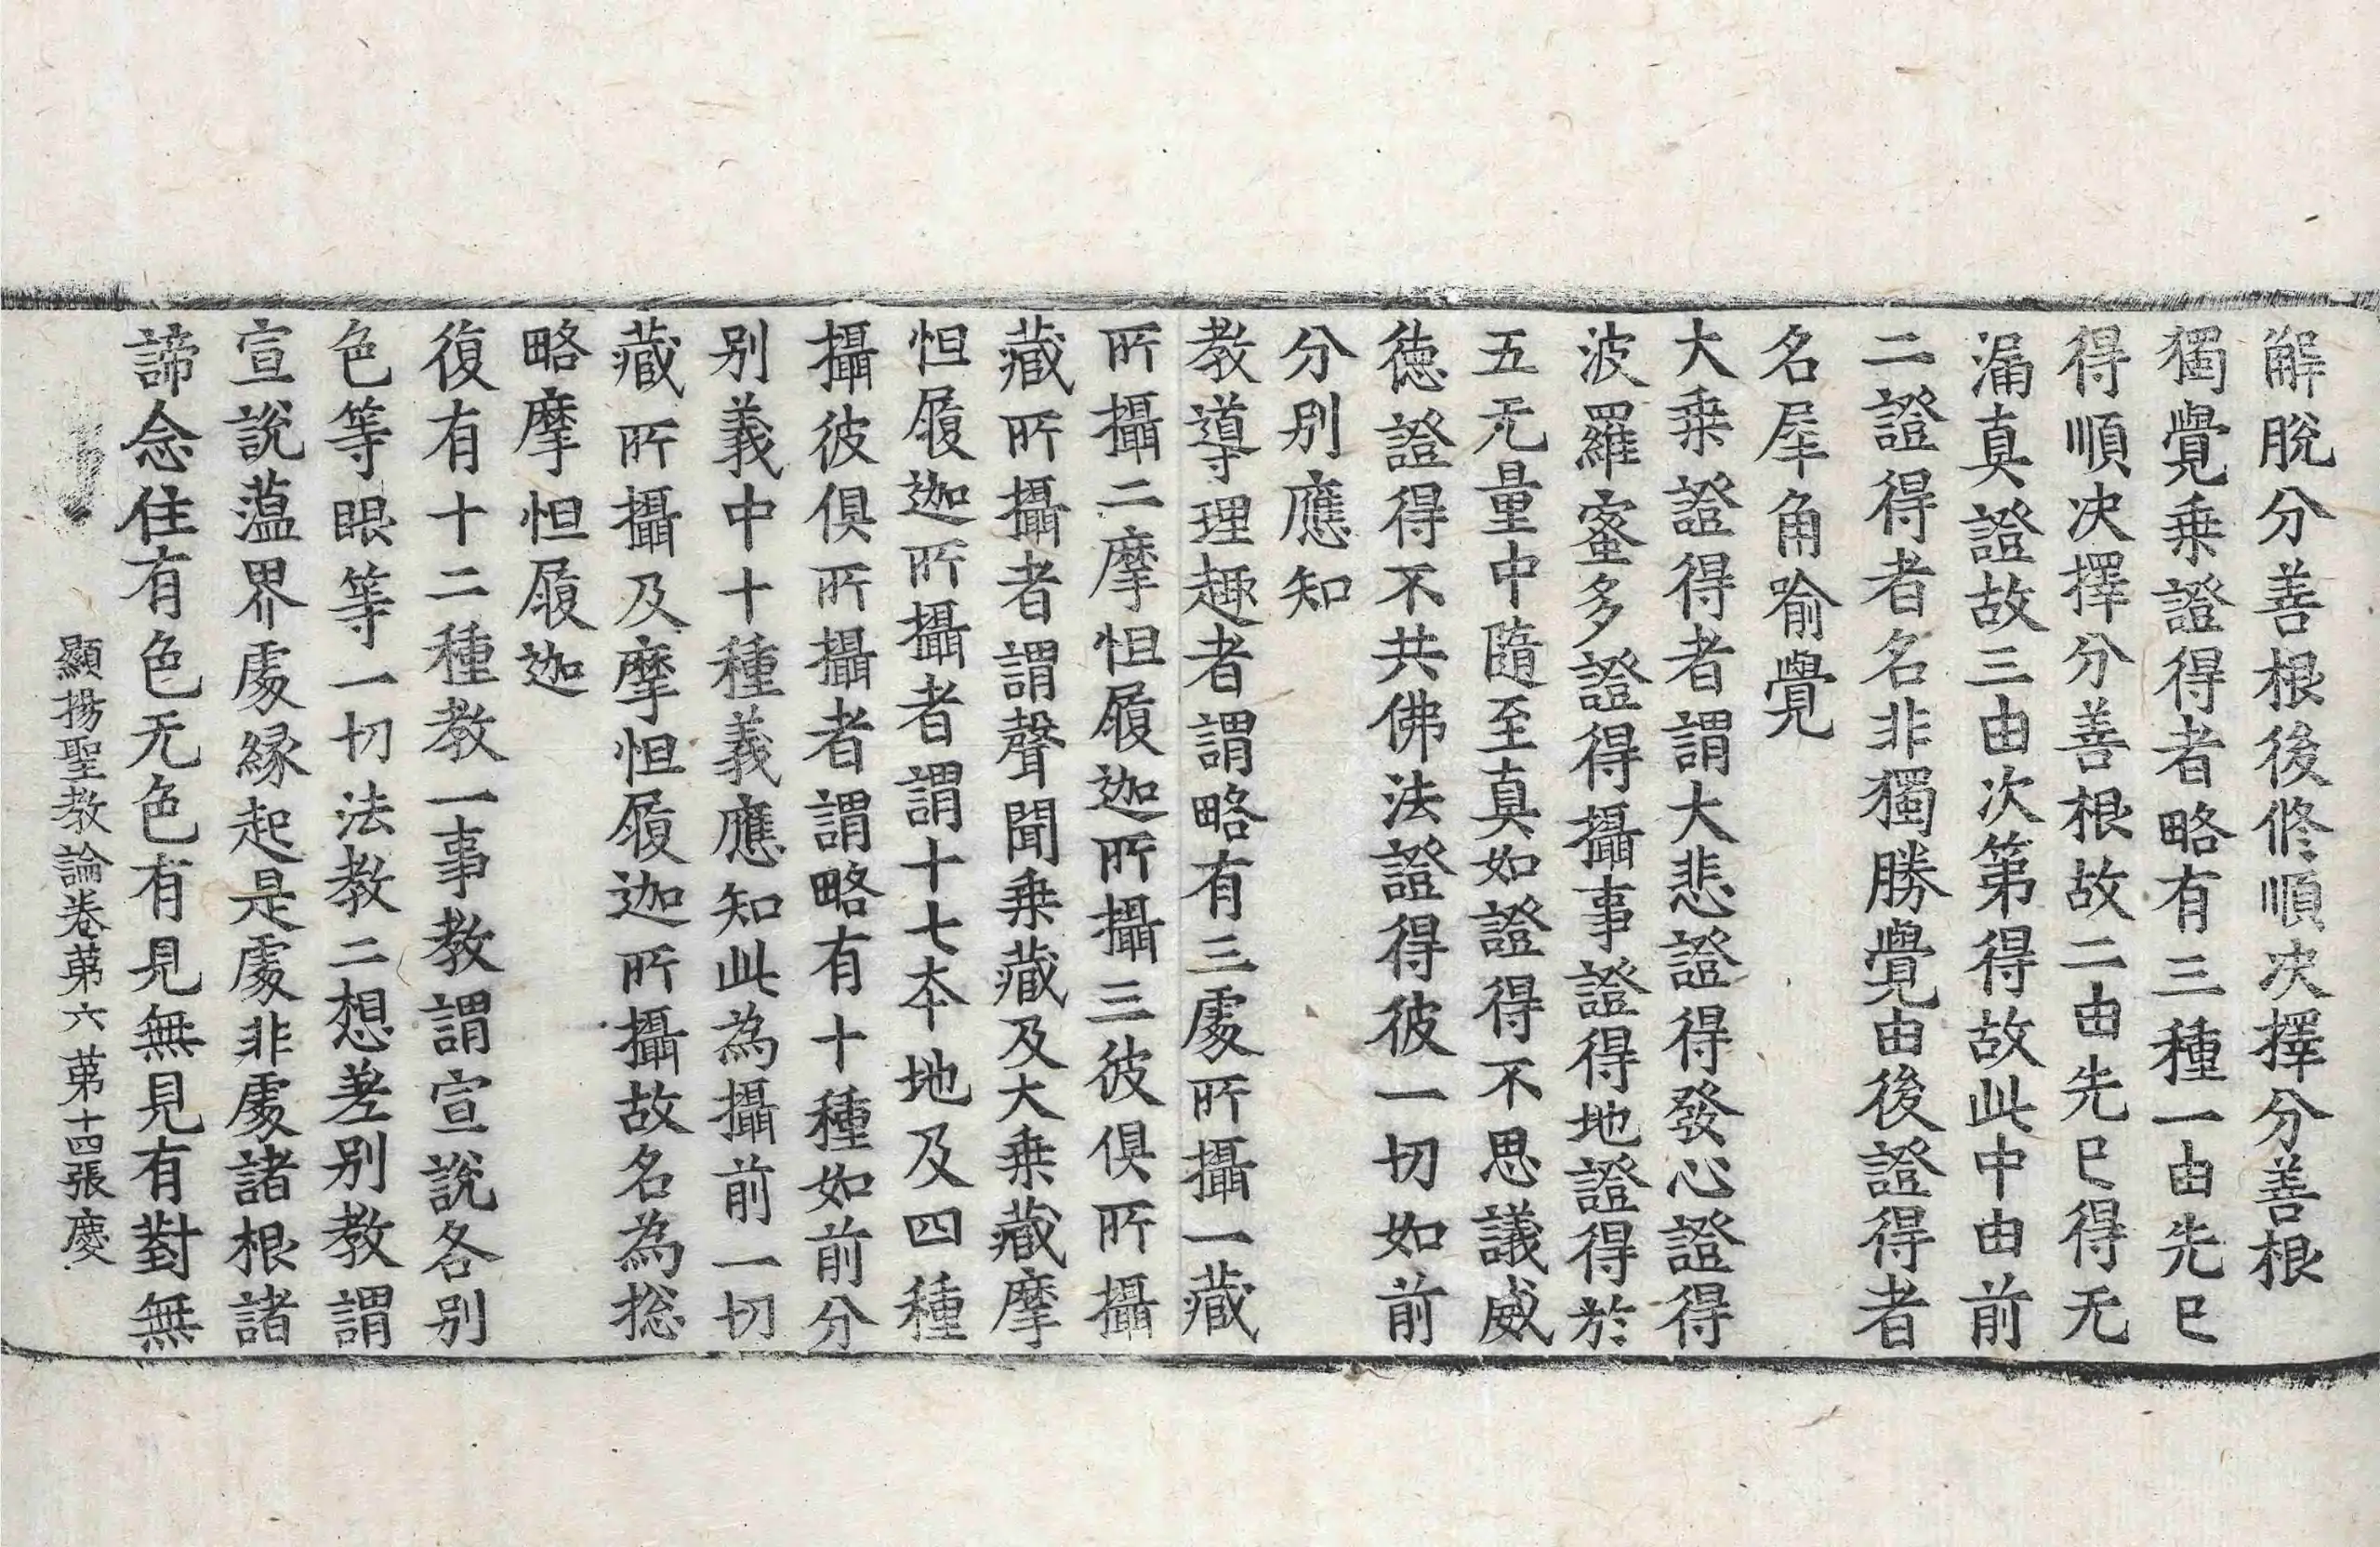 解脫分善根後修順决擇分善根
獨覺乗證得者略有三種一由先巳
得順决擇分善根故二由先巳得无
漏真證故三由次第得故此中由前
二證得者名非獨勝覺由後證得者
名犀角喻覺
大乗證得者謂大悲證得發心證得
波羅蜜多證得攝事證得地證得於
五无量中隨至真如證得不思議威
德證得不共佛法證得彼一切如前
分別應知
教導理趣者謂略有三處所攝一藏
所攝二摩怛履迦所攝三彼俱所攝
藏所攝者謂聲聞乗藏及大乗藏摩
怛履迦所攝者謂十七本地及四種
攝彼俱所攝者謂略有十種如前分
別義中十種義應知此為攝前一切
藏所攝及摩怛履迦所攝故名為捴
略摩怛履迦
復有十二種教一事教謂宣說各別
色等眼等一切法教二想差別教謂
宣說薀界處緣起是處非處諸根諸
諦念住有色无色有見無見有對無
顯揚聖教論卷第六 第十四張 慶